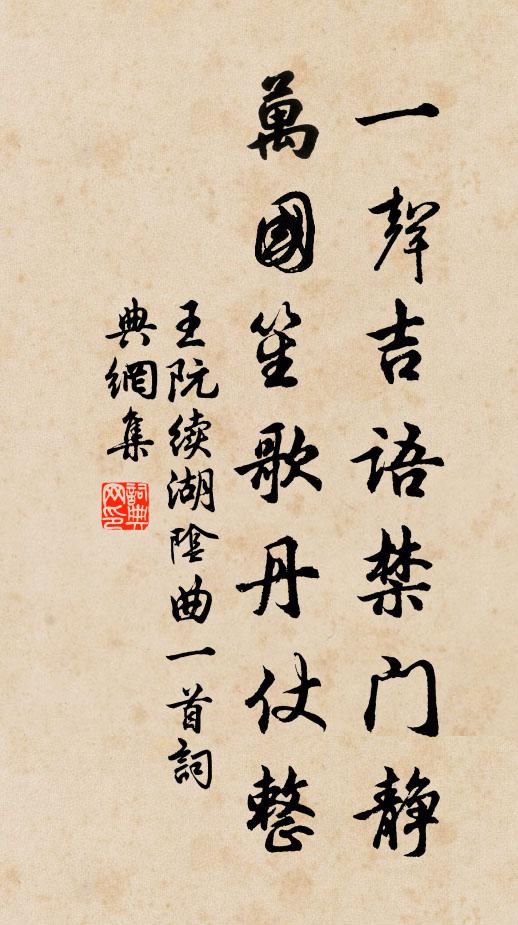 一聲吉語禁门静
萬國笙歌丹仗整
王阮续湖陰曲一首詞
典網集
詞典网印